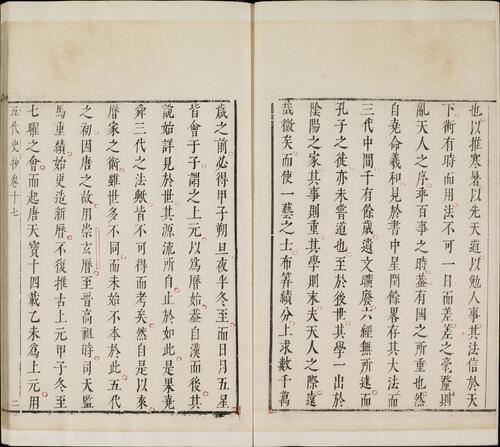 也以推寒暑以先天道以勉人事其法信於天
下術有時而用法不可一日而差差之毫釐則
亂天人之序乖百事之時蓋有國之所重也然
自堯命羲和見於書中星閏餘畧存其大法而
三代中間千有餘歲遺文曠廢六經無所述而
孔子之徒亦未嘗道也至於後世其學一出於
陰陽之家其事則重其學則末夫天人之際遠
哉微矣而使一藝之士布筭績分上求數千萬
歲之前必得甲子朔旦夜半冬至而日月五星
皆會于子謂之上元以為曆始蓋自漢而後其
說始詳見於世其源流所自止於如此是果堯
舜三代之法歟皆不可得而考矣然自是以來
曆家之術雖世多不同而未始不本於此五代
之初因唐之故用崇玄曆至晉高祖時司天監
馬重績始更造新曆不復推古上元甲子冬至
七曜之會而起唐天寶十四載乙未為上元用
五代史抄卷十七 二